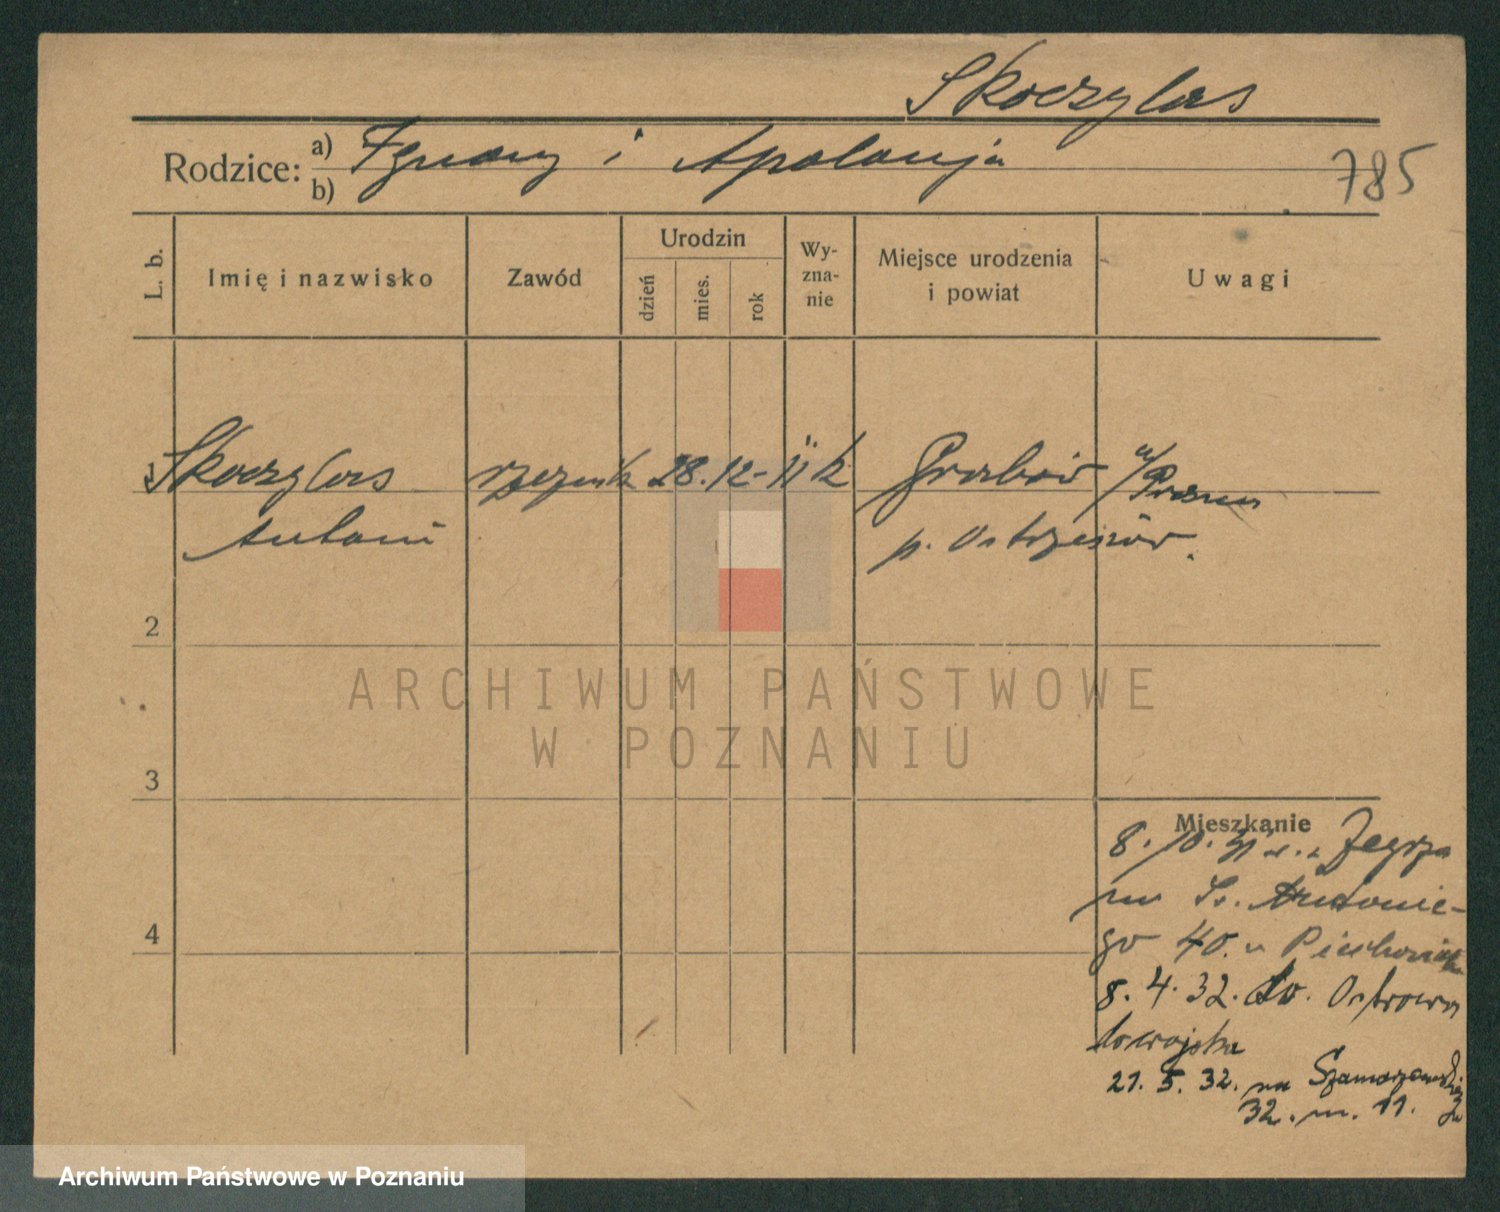 Skoczylas
Rodzice: a) Ignacy i Apolonja
b)
785
L. b.
Imię i nazwisko
Zawód
Urodzin
dzień
mies.
rok
Wy-
zna-
nie
Miejsce urodzenia
i powiat
Uwagi
1 Skoczylas rzeźnik 28. 12 - 11 k Grabów n/
Prosną
Antoni p. Ostrzeszów.
2
3
4
Mieszkanie
8. 10. 31 Zegrza
na Św. Antonie-
go 40. u Piechowiak
8. 4. 32. do Ostrowa
do wojska
21. 5. 32. na Szamarzewskiego
32. m. 11.
ARCHIWUM PAŃSTWOWE
W POZNANIU
Archiwum Państwowe w Poznaniu